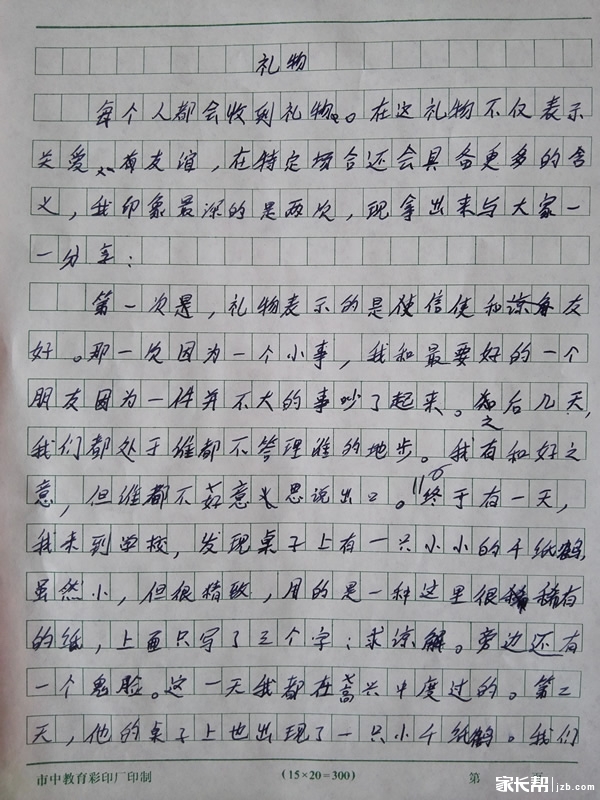 礼物
每个人都会收到礼物。在这礼物不仅表示
关爱、有友谊，在特定场合还会具备更多的含
义，我印象最深的是两次，现拿出来与大家一
一分享：
第一次是，礼物表示的是使信使和谅友
好。那一次因为一个小事，我和最要好的一个
朋友因为一件并不大的事吵了起来。之后几天，
我们都处于谁都不答理谁的地步。我有和好之
意，但谁都不好意思说出口。终于有一天，
我来到学校，发现桌子上有一只小小的千纸鹤，
虽然小，但很精致，用的是一种这里很稀有
的纸，上面只写了三个字：求谅解。旁边还有
一个鬼脸。这一天我都在高兴中度过的。第二
天，他的桌子上也出现了一只小千纸鹤。我们
市中教育彩印厂印制 (15×20=300) 第 页
家长帮 jzb.com